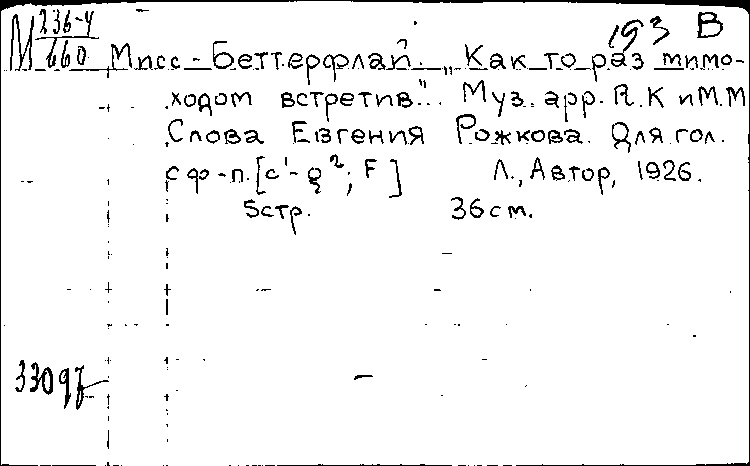 М 236-4 193 В
660 Мисс-Беттерфлай. „Как то раз мимо-
ходом встретив"... Муз. арр. Я.К и М.М
Слова Евгения Рожкова. Для гол.
с ф-п. [c¹-g²; F] Л., Автор, 1926.
5стр. 36см.